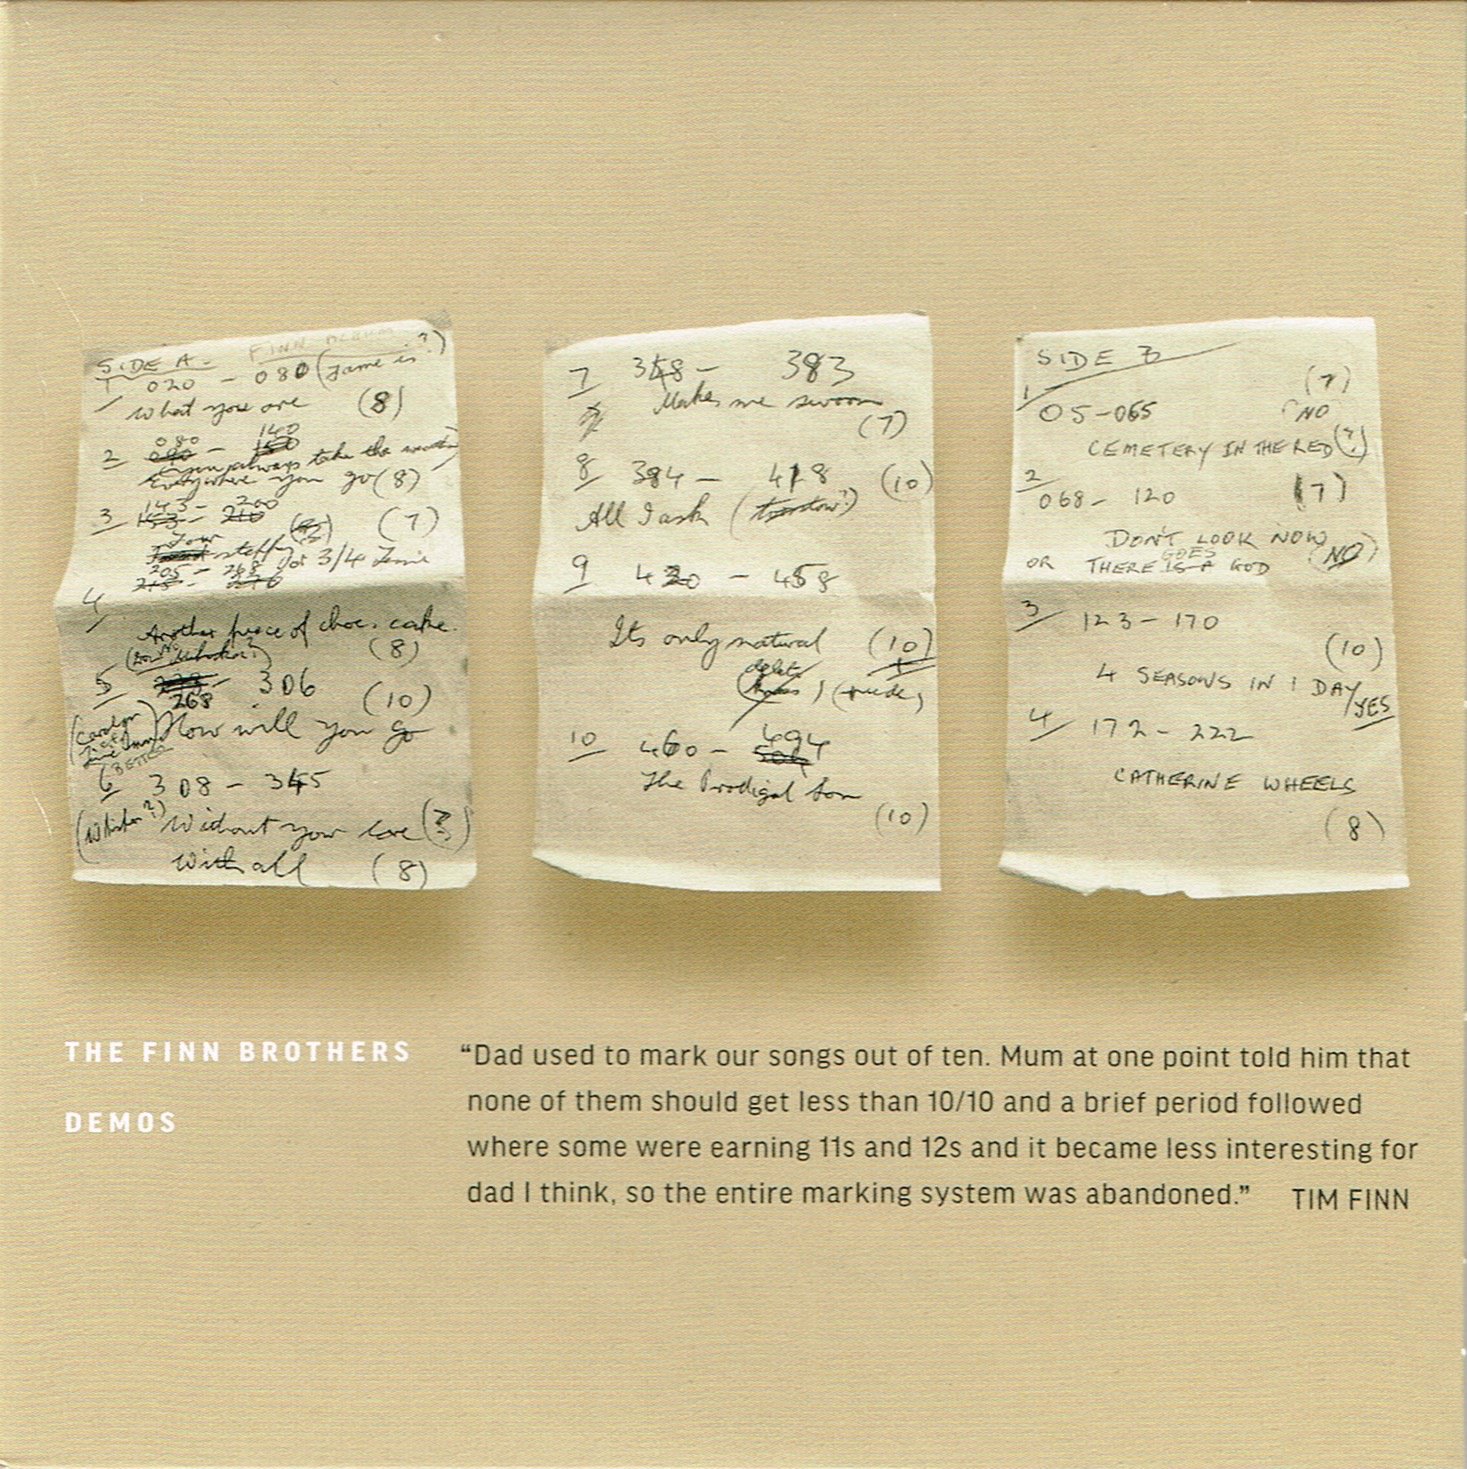 SIDE A - FINN ALBUM
1 020 - 080 (name is?)
What you are (8)
2 080 - 140
always take the weather
Everywhere you go (8)
3 143 - 200 (7)
Four 3/4 time
205 - 268
4
Another piece of choc. cake.
(8)
5 268 306 (10)
How will you go
BETTER
6 308 - 345
Without your love (?)
With all (8)
7 348 - 383
Makes me swoon
(7)
8 384 - 418 (10)
All I ask
9 420 - 458
Its only natural (10)
10 460 - 494
The Prodigal Son
(10)
SIDE B
1 (7)
05-065 NO
CEMETERY IN THE RED (?)
2
068 - 120 (7)
DON'T LOOK NOW
GOES
OR THERE IS A GOD (NO)
3 123 - 170
(10)
4 SEASONS IN 1 DAY YES
4 172 - 222
CATHERINE WHEELS
(8)
THE FINN BROTHERS
DEMOS
“Dad used to mark our songs out of ten. Mum at one point told him that
none of them should get less than 10/10 and a brief period followed
where some were earning 11s and 12s and it became less interesting for
dad I think, so the entire marking system was abandoned.” TIM FINN